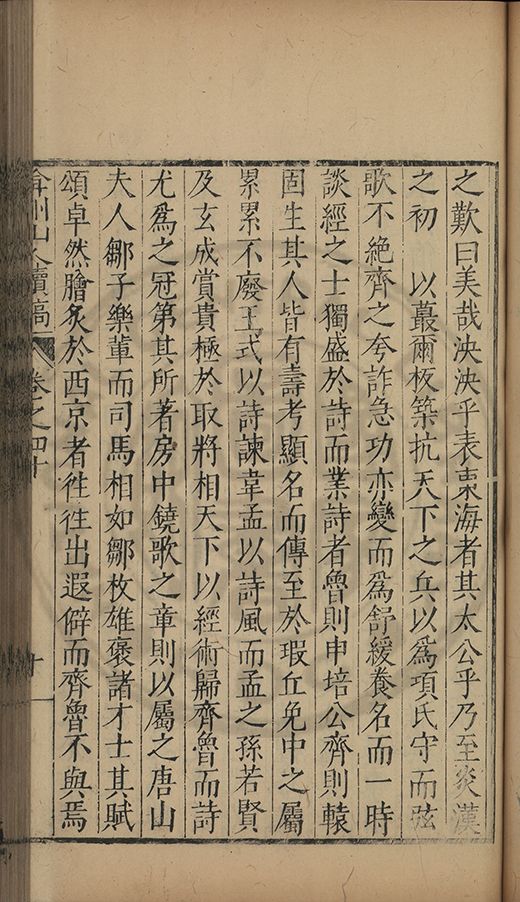 之歎曰美哉泱泱乎表東海者其太公乎乃至炎漢
之初　以蕞爾板築抗天下之兵以爲項氏守而弦
歌不絶齊之夸詐急功亦變而爲舒緩養名而一時
談經之士獨盛於詩而業詩者魯則申培公齊則轅
固生其人皆有壽考顯名而傳至於瑕丘免中之屬
累累不廢王式以詩諫韋孟以詩風而孟之孫若賢
及玄成賞貴極於取將相天下以經術歸齊魯而詩
尤爲之冠第其所著房中鐃歌之章則以屬之唐山
夫人鄒子樂軰而司馬相如鄒枚雄褒諸才士其賦
頌卓然膾炙於西京者徃徃出遐僻而齊魯不與焉
弇州山人續稿　卷之四十　十